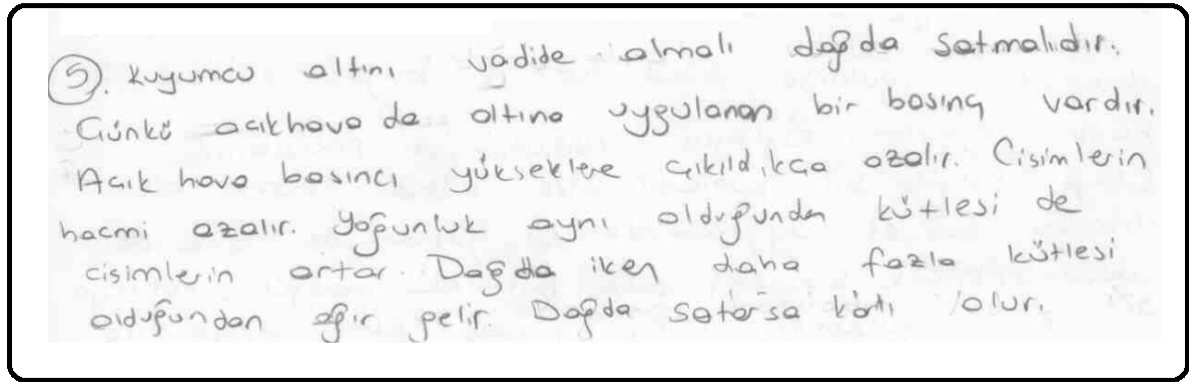 5. Kuyumcu altını vadide almalı dağda satmalıdır.
Çünkü açıkhava da altına uygulanan bir basınç vardır.
Açık hava basıncı yükseklere çıkıldıkça azalır. Cisimlerin
hacmi azalır. Yoğunluk aynı olduğundan kütlesi de
cisimlerin artar. Dağda iken daha fazla kütlesi
olduğundan ağır gelir. Dağda satarsa karlı olur.